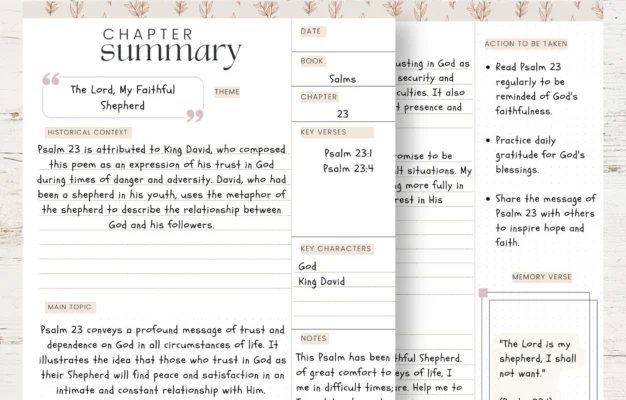 CHAPTER
summary
The Lord, My Faithful
Shepherd
THEME
HISTORICAL CONTEXT
Psalm 23 is attributed to King David, who composed
this poem as an expression of his trust in God
during times of danger and adversity. David, who had
been a shepherd in his youth, uses the metaphor of
the shepherd to describe the relationship between
God and his followers.
MAIN TOPIC
Psalm 23 conveys a profound message of trust and
dependence on God in all circumstances of life. It
illustrates the idea that those who trust in God as
their Shepherd will find peace and satisfaction in an
intimate and constant relationship with Him.
DATE
BOOK
Salms
CHAPTER
23
KEY VERSES
Psalm 23:1
Psalm 23:4
KEY CHARACTERS
God
King David
NOTES
This Psalm has been
of great comfort to
me in difficult times;
usting in God as
security and
culties. It also
t presence and
romise to be
lt situations. My
ng more fully in
rest in His
thful Shepherd.
eys of life, I
ure. Help me to
ACTION TO BE TAKEN
• Read Psalm 23
regularly to be
reminded of God's
faithfulness.
• Practice daily
gratitude for God's
blessings.
• Share the message of
Psalm 23 with others
to inspire hope and
faith.
MEMORY VERSE
"The Lord is my
shepherd, I shall
not want."